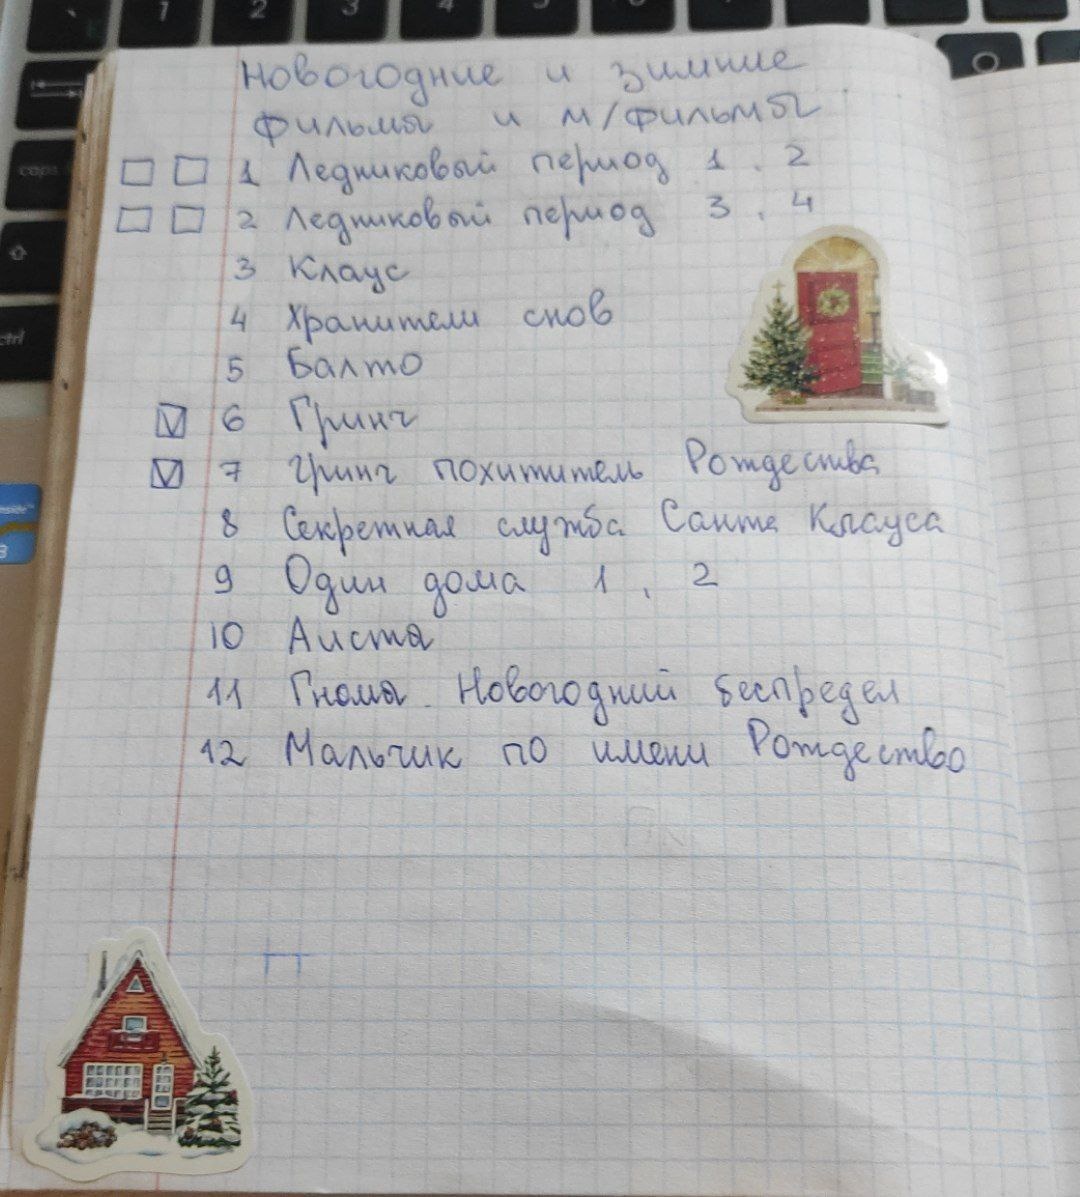 Новогодние и зимние
фильмы и м/фильмы
1 Ледниковый период 1, 2
2 Ледниковый период 3, 4
3 Клаус
4 Хранители снов
5 Балто
6 Гринч
7 Гринч похититель Рождества
8 Секретная служба Санта Клауса
9 Один дома 1, 2
10 Аисты
11 Гномы Новогодний беспредел
12 Мальчик по имени Рождество